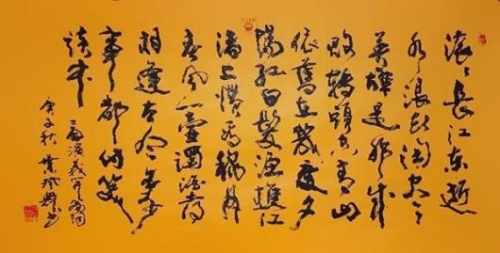 滚滚長江东逝
水浪花淘尽
英雄是非成
败转頭空青山
依舊在幾度夕
陽红白髮渔樵江
渚上惯看秋月
春风一壶濁酒喜
相逢古今多少
事都付笑
谈中
三国演义开篇词
庚子秋